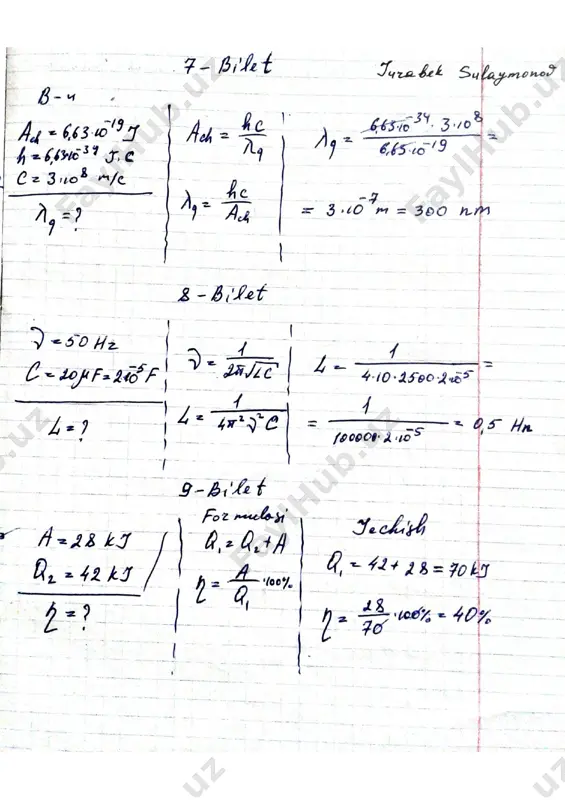 7 - Bilet
Jurabek Sulaymonov
B-4
A_ch = 6,63·10^-19 J
h = 6,63·10^-34 J·C
C = 3·10^8 m/c
λ_q = ?
A_ch = hc/λ_q
λ_q = hc/A_ch
λ_q = 6,63·10^-34 · 3·10^8 / 6,65·10^-19 =
= 3·10^-7 m = 300 nm
8 - Bilet
ν = 50 Hz
C = 20 μF = 2·10^-5 F
L = ?
ν = 1/2π√LC
L = 1/4π²ν²C
L = 1/4·10·2500·2·10^-5 =
= 1/100000·2·10^-5 = 0,5 Hn
9 - Bilet
A = 28 kJ
Q_2 = 42 kJ
η = ?
Formulasi
Q_1 = Q_2 + A
η = A/Q_1 · 100%
Yechish
Q_1 = 42 + 28 = 70 kJ
η = 28/70 · 100% = 40%
FaylHub.uz
FaylHub.uz
FaylHub.uz
FaylHub.uz
uz
uz